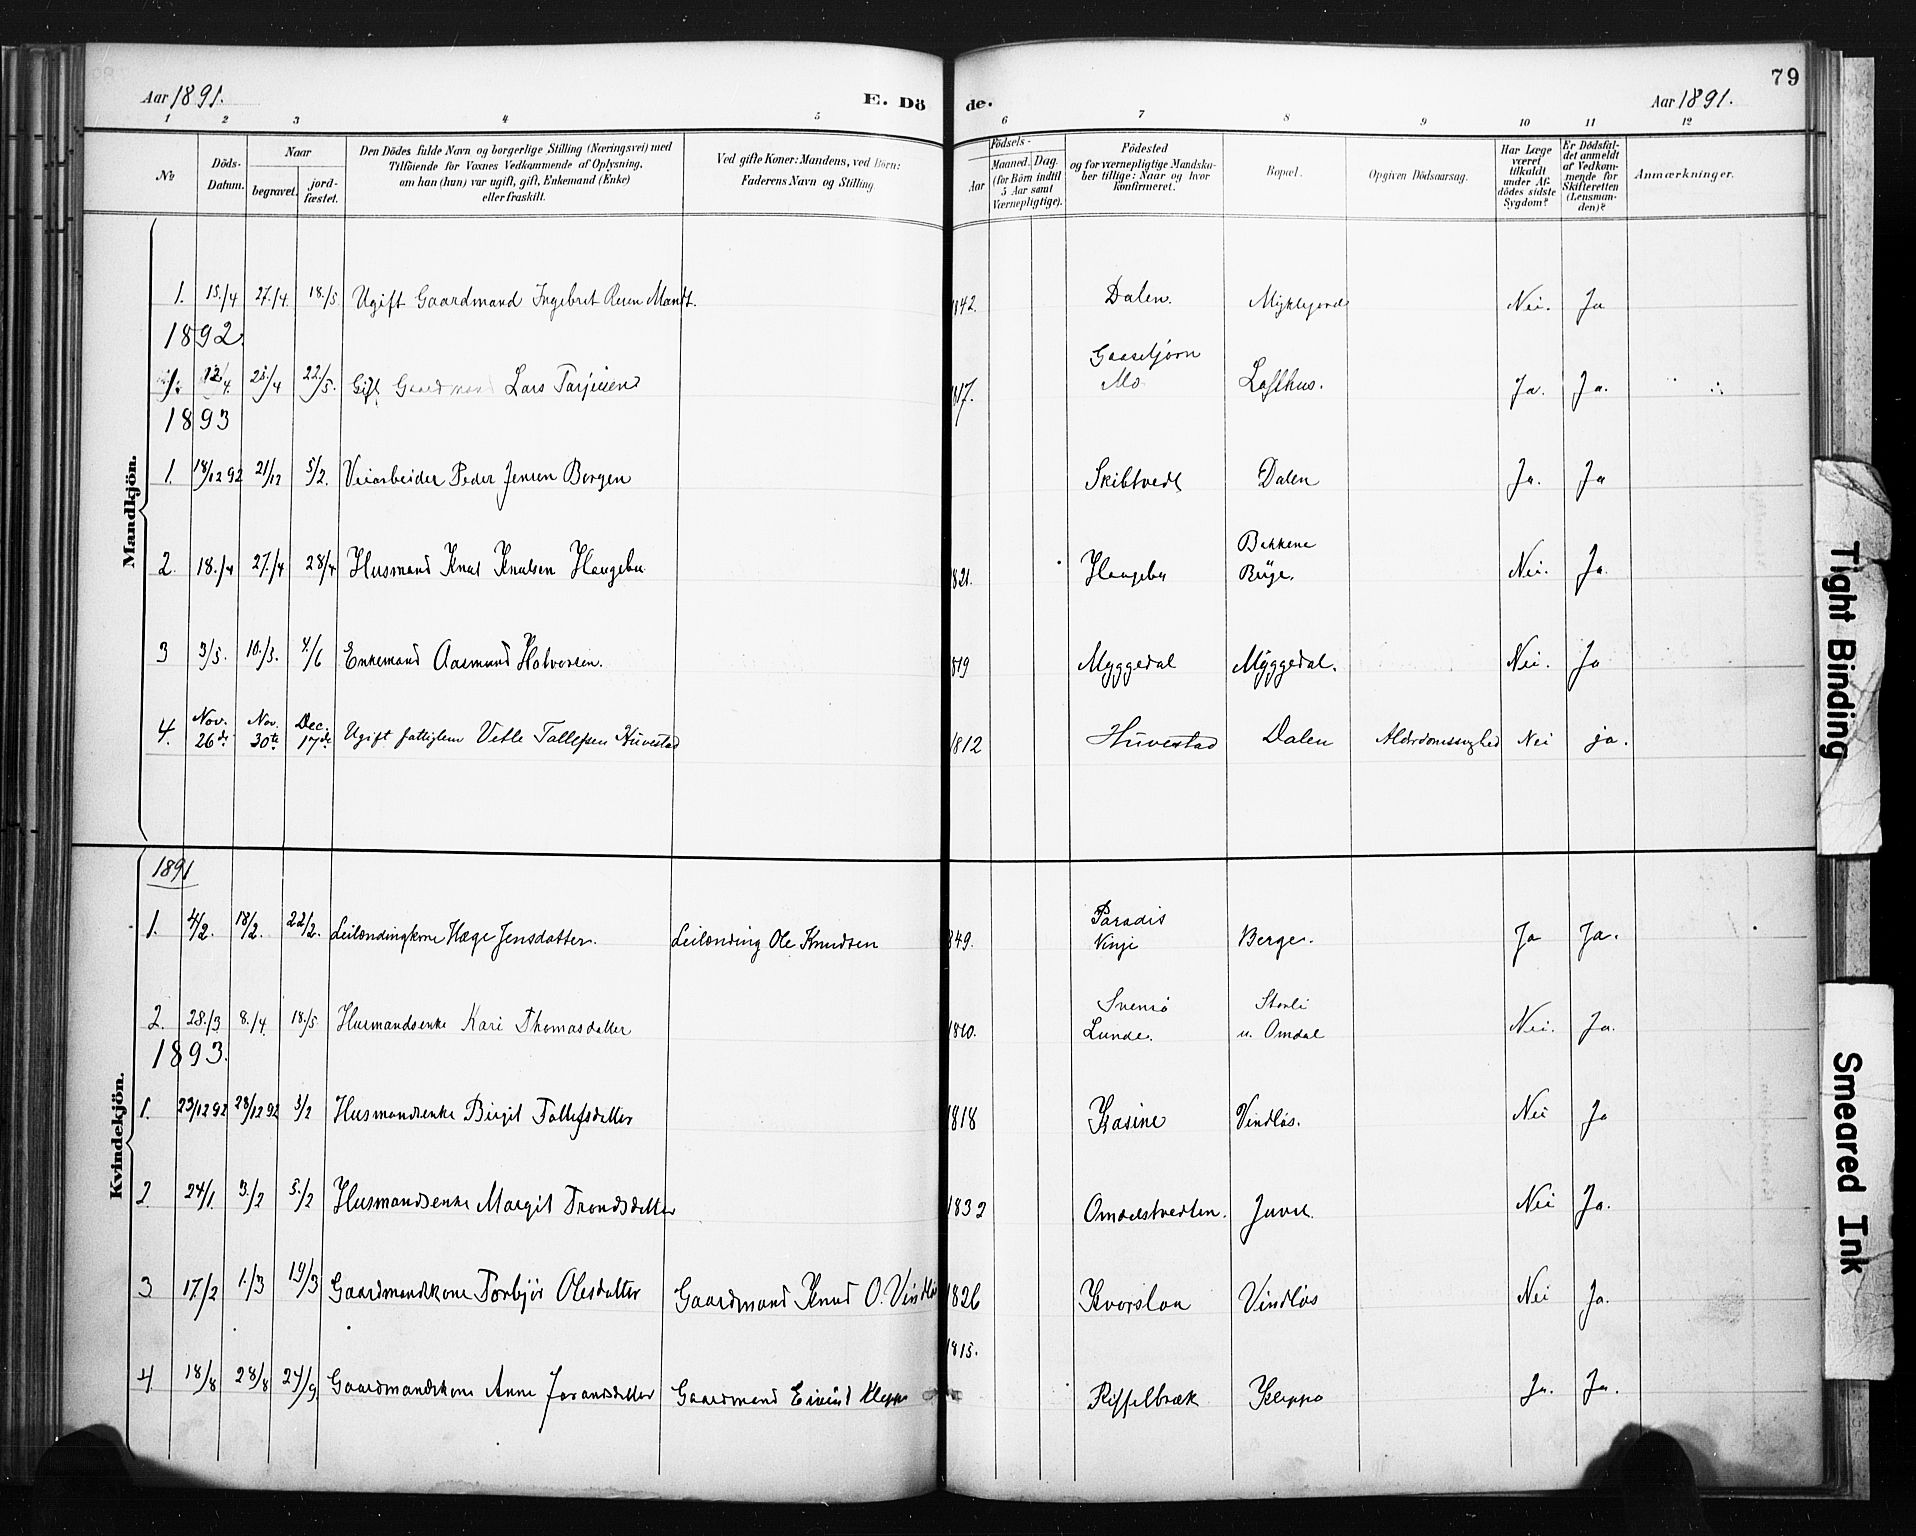 79
Aar 1891.
E. Dö de.
Aar 1891.
1 2 3 4 5 6 7 8 9 10 11 12
No
Döds-Datum.
Naar
begravet.
jord-fæstet.
Den Dödes fulde Navn og borgerlige Stilling (Næringsvei) med
Tilföiende for Voxnes Vedkommende af Oplysning,
om han (hun) var ugift, gift, Enkemand (Enke)
eller fraskilt.
Ved gifte Koner: Mandens, ved Börn:
Faderens Navn og Stilling.
Födsels-
Aar
Maaned. Dag.
(for Börn indtil
5 Aar samt
Værnepligtige).
Födested
og for værnepligtige Mandska-
ber tillige: Naar og hvor
konfirmeret.
Bopæl.
Opgiven Dödsaarsag.
Har Læge
været
tilkaldt
under Af-
dödes sidste
Sygdom?
Er Dödsfal-
det anmeldt
af Vedkom-
mende for
Skifteretten
(Lensman-
den)?
Anmærkninger.
Mandkjön.
1. 15./4 27./4. 18./5 Ugift Gaardmand Ingebret Mandt. 1842. Dalen. Nei. Ja
1892.
1. 12/4. 25./4 22./5. Gift Gaardmand Lars Tarjeisen 1817. Mo Lofthus. Ja. Ja.
1893
1. 18/12 92 21/12 5/2. Veiarbeider Peder Jensen Borgen Skibtvedt Dalen Ja. Ja
2. 18./4 27./4 28/4 Husmand Knut Knutsen Haugebu 1821. Haugebu Bakkene Nei. Ja.
3 3/5. 10./5. 4./6 Enkemand Aasmund Halvorsen. 1819 Myggedal Myggedal. Nei. Ja
4. Nov. 26de Nov. 30te Dec. 17de Ugift fattiglem Vetle Tallefsen Huvestad 1812 Huvestad Dalen Alderdomssvaghed Nei ja.
Kvindekjön.
1891
1. 4/2. 18/2. 22/2. Leilændingkone Hæge Jensdatter. Leilænding Ole Knudsen 1849. Paradis Vinje Berge. Ja Ja.
2. 28./3 8./4. 18./5 Husmandsenke Kari Thomasdatter 1810. Lunde. Storli u. Omdal Nei. Ja.
1893.
1. 23/12 92 28/12 92 5/2 Husmandsenke Birgit Tallefsdatter 1818 Kasine Vindlos. Nei Ja
2. 24/1. 3./2 5./2 Husmandsenke Margit Trondsdatter 1832 Omdalstvedten. Juvel. Nei Ja.
3 17/2 1./3 19/3 Gaardmandskone Torbjør Olesdatter Gaardmand Knud O. Vindlos 1826 Kvorslan Vindlos Nei Ja.
4 18/8 28/8 24/9 Gaardmandskone Anne Jorandsdatter Gaardmand Eivind Kleppo 1815. Riffelbræk Kleppo Ja. Ja.
Tight Binding
Smeared Ink